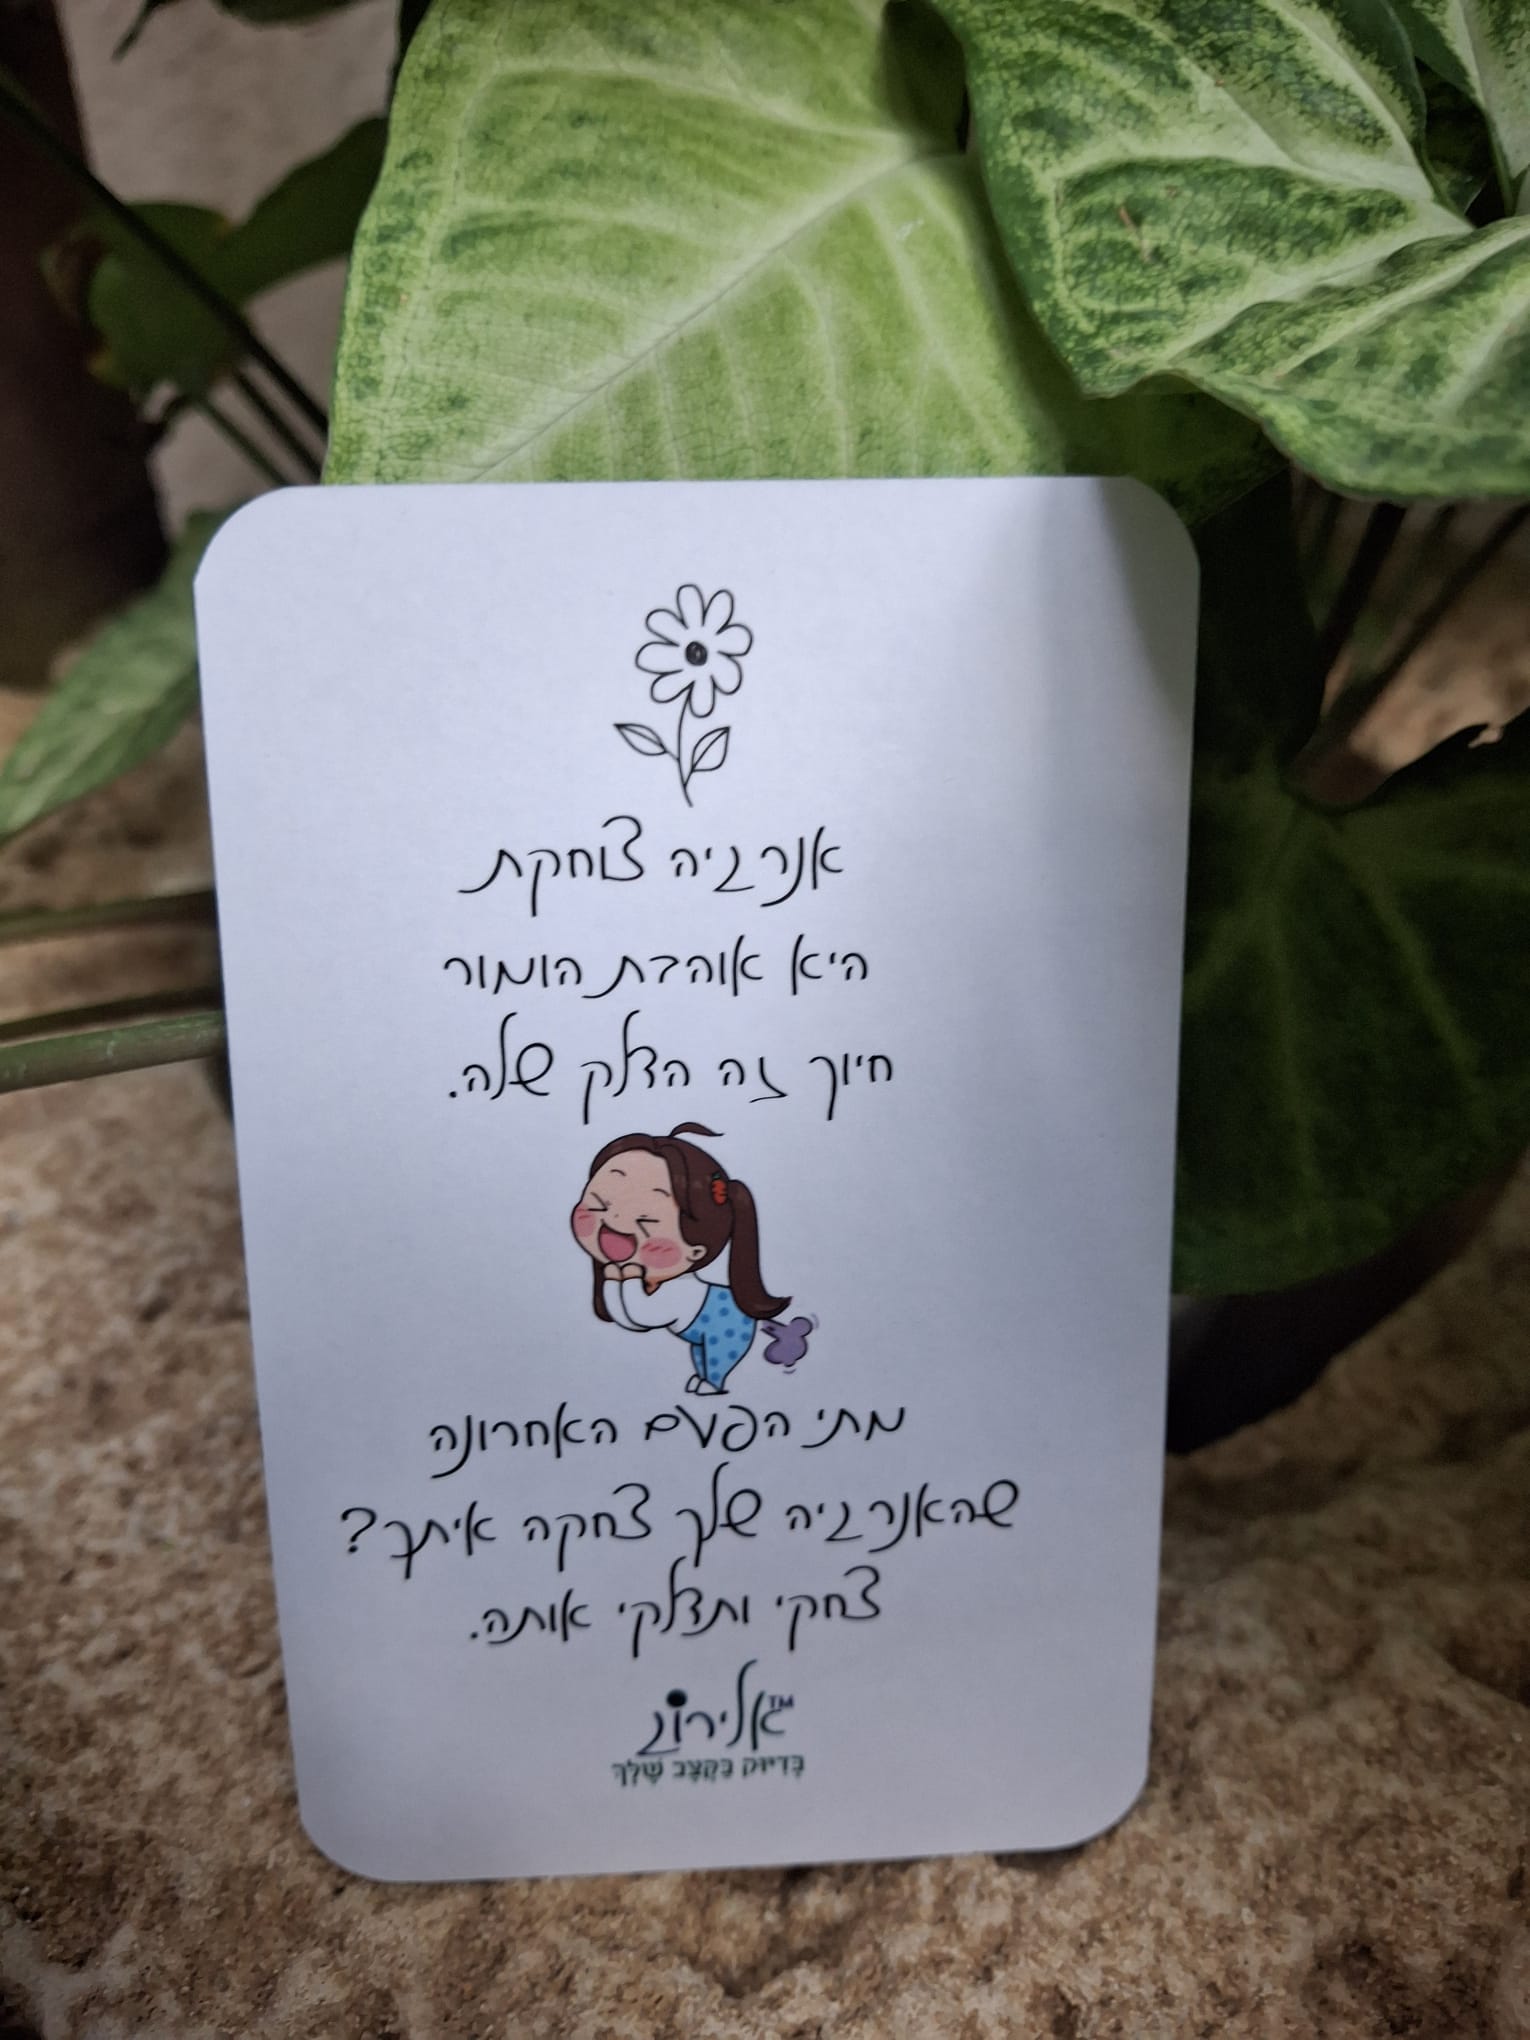 אנרגיה צוחקת
היא אוהבת הומור
חיוך זה הדלק שלה.
מתי הפעם האחרונה
שהאנרגיה שלך צחקה איתך?
צחקי ותדלקי אותה.
אלירוג™
בְּדִיּוּק בַּקֶּצֶב שֶׁלָּךְ